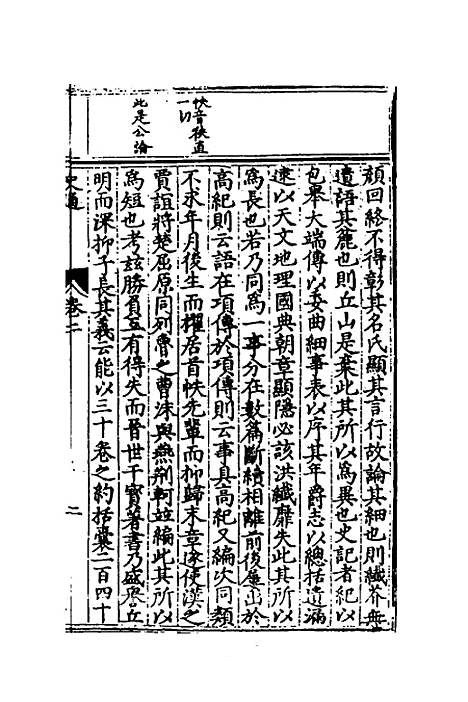 顔回終不得彰其名氏顯其言行故論其細也則纎芥無
遺語其麄也則丘山是棄此其所以爲異也史記者紀以
包舉大端傳以委曲細事表以序其年爵志以總括遺漏
逮以天文地理國典朝章顯隱必該洪纎靡失此其所以
爲長也若乃同爲一事分在數篇斷續相離前後屢出於
高紀則云語在項傳於項傳則云事具高紀又編次同類
不求年月後生而擢居首帙先輩而抑歸末章遂使漢之
賈誼將楚屈原同列魯之曹沫與燕荆軻並編此其所以
爲短也考玆勝負互有得失而晉世干寳著書乃盛譽丘
明而深抑子長其義云能以三十卷之約括囊二百四十
帙音秩直
一切
此是公論
史通
卷二
二